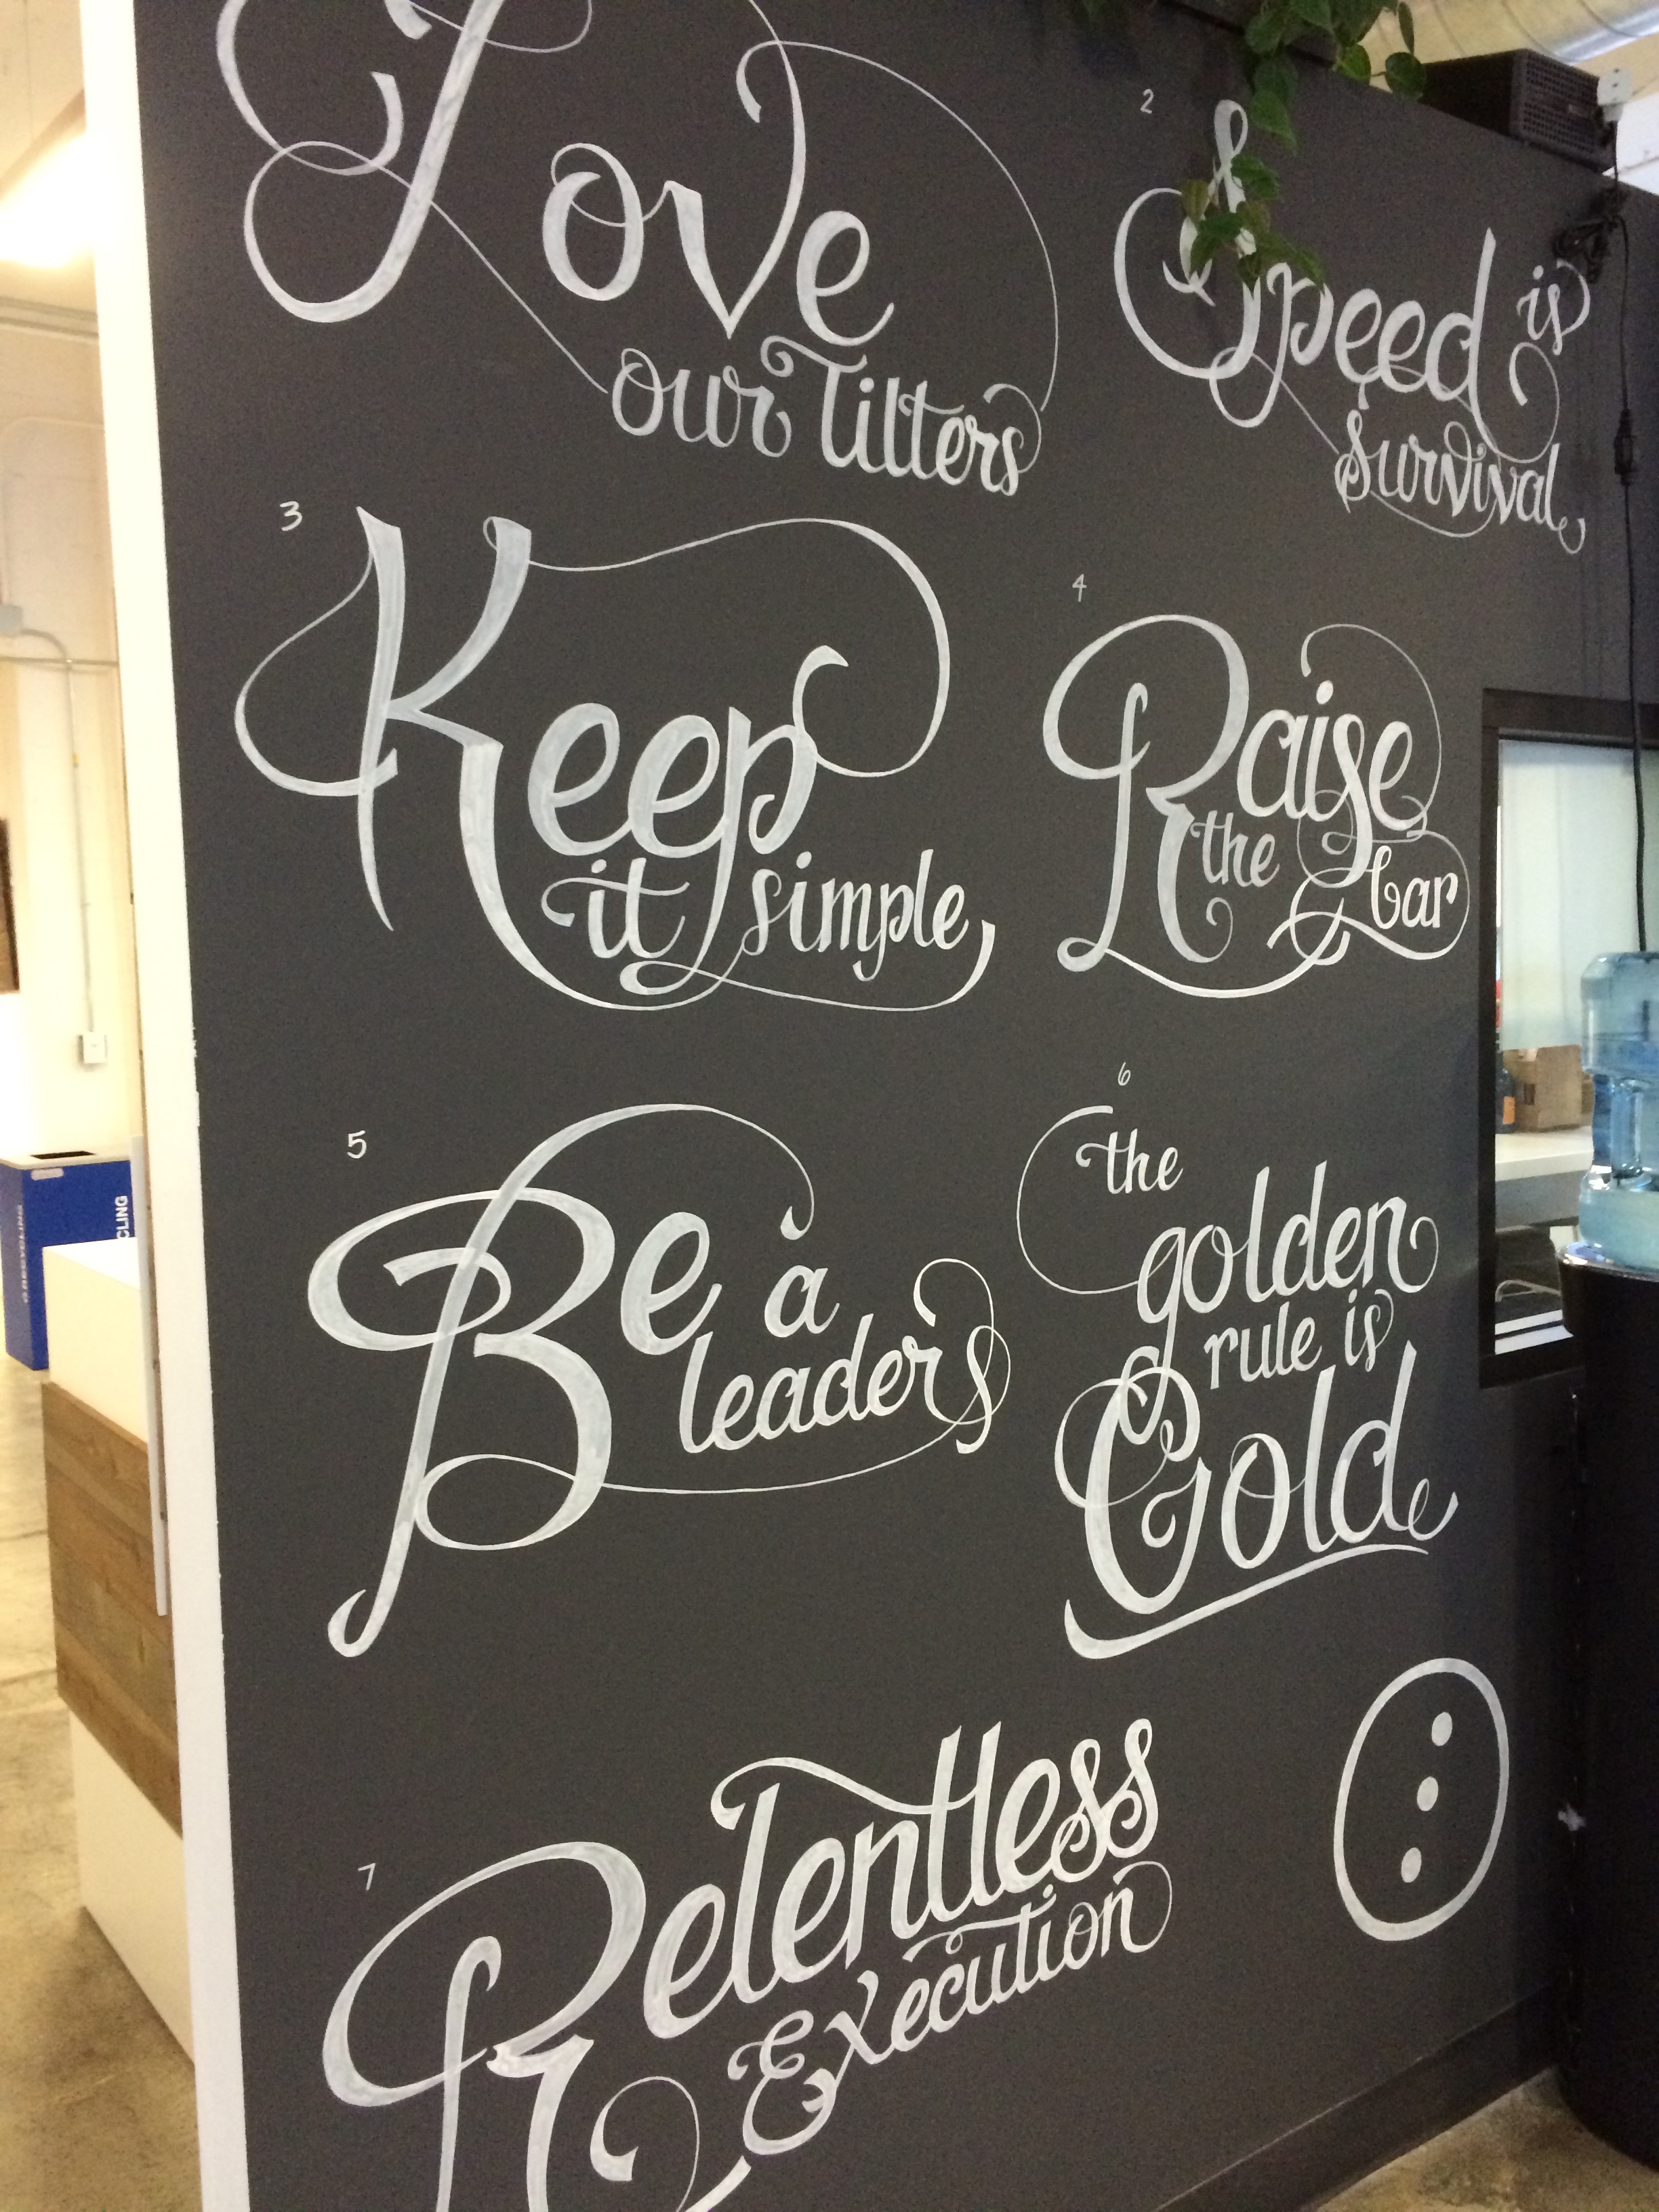 Love
our Tilters
2
Speed is
survival
3
Keep
it simple
4
Raise
the bar
5
Be a
leader
6
the
golden
rule is
Gold
7
Relentless
Execution
RECYCLING
CLING